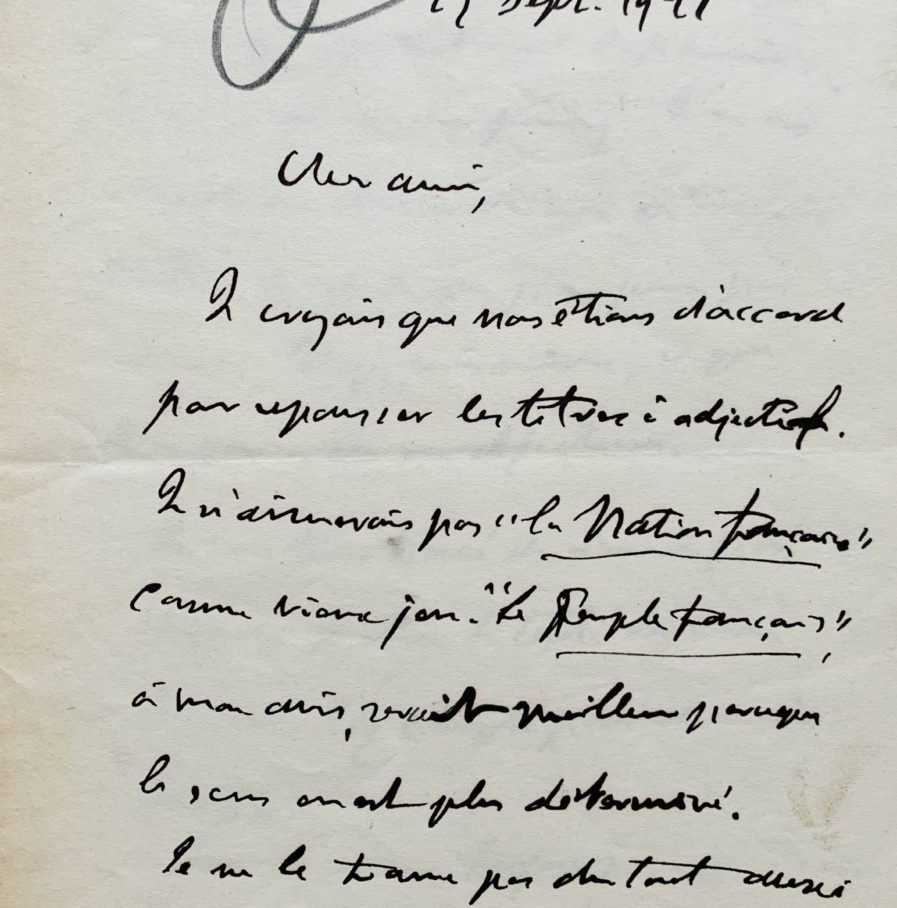 Sept. 19
Cher ami,
Je croyais que nous étions d'accord
pour repousser les titres à adjectif.
Je n'aimerais pas "la Nation française"
comme journal. "Le Peuple français",
à mon avis, serait meilleur parce que
le sens en est plus déterminé.
Je ne le trouve pas du tout aussi